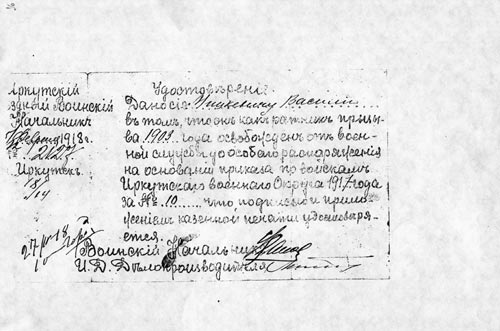 Иркутскій
Уѣздный Воинскій
Начальникъ
1918 г.
№
Иркутскъ.
Удостовѣреніе
Дано сіе Василію
въ томъ, что онъ какъ ратникъ призы-
ва 1903 года освобожденъ отъ воен-
ной службы до особаго распоряженія
на основаніи приказа по войскамъ
Иркутскаго военнаго Округа 1917 года
за № 10 что, подписью и прило-
женіемъ казенной печати удостовѣря-
ется.
Воинскій Начальникъ
И. Д. Дѣлопроизводителя